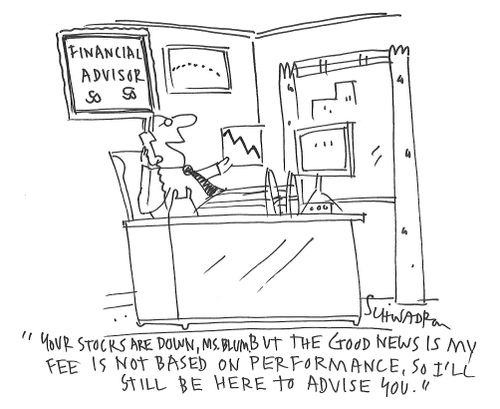 FINANCIAL
ADVISOR
SCHWADRON
"YOUR STOCKS ARE DOWN, MS. BLUM, BUT THE GOOD NEWS IS MY
FEE IS NOT BASED ON PERFORMANCE, SO I'LL
STILL BE HERE TO ADVISE YOU."